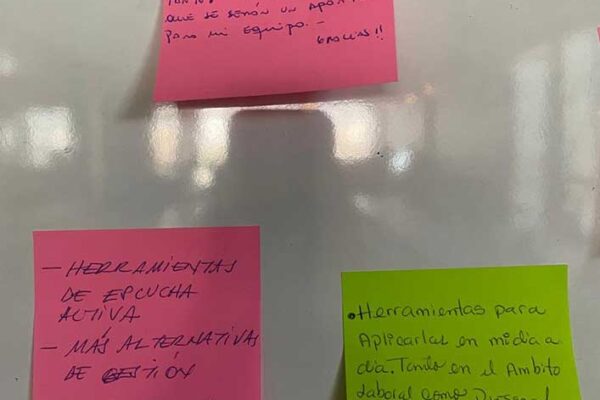 QUE SE SERÁN UN APORTE
PARA MI EQUIPO.-
GRACIAS!!
- HERRAMIENTAS
DE ESCUCHA
ACTIVA
- MÁS ALTERNATIVAS
DE GESTIÓN
•Herramientas para
Aplicarlas en mi dia a
dia. Tanto en el Ambito
Laboral como Personal